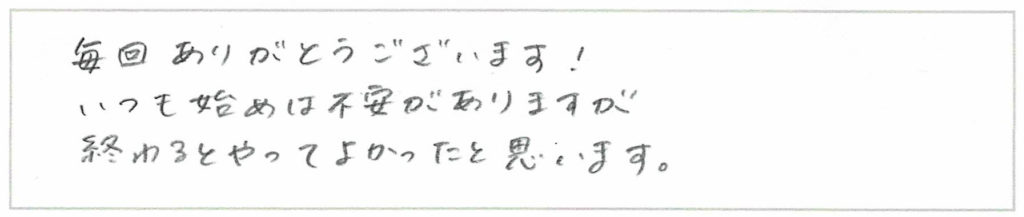 毎回ありがとうございます!
いつも始めは不安がありますが
終わるとやってよかったと思います。